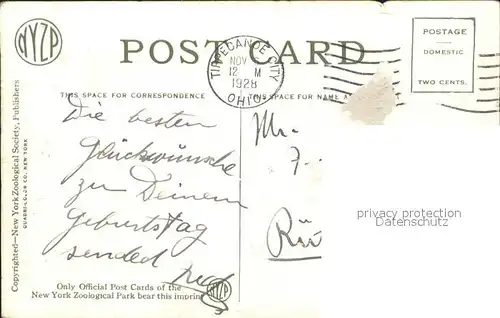 NYZP
POST CARD
TIPPECANOE CITY
NOV
12 M
1928
OHIO
POSTAGE
DOMESTIC
TWO CENTS.
THIS SPACE FOR CORRESPONDENCE
THIS SPACE FOR NAME A
Die besten
Glückwünsche
zu Deinem
Geburtstag
sended
Mr.
Copyrighted—New York Zoological Society, Publishers
privacy protection
Datenschutz
Only Official Post Cards of the
New York Zoological Park bear this imprint NYZP